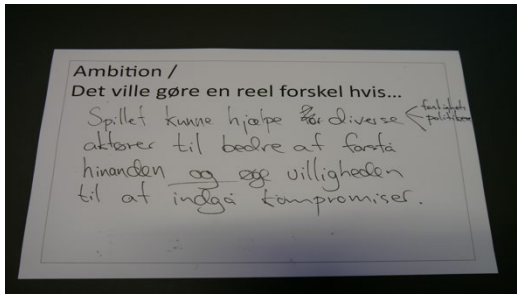 Ambition /
Det ville gøre en reel forskel hvis...
Spillet kunne hjælpe diverse
politikere
aktører til bedre at forstå
hinanden og øge villigheden
til at indgå kompromiser.